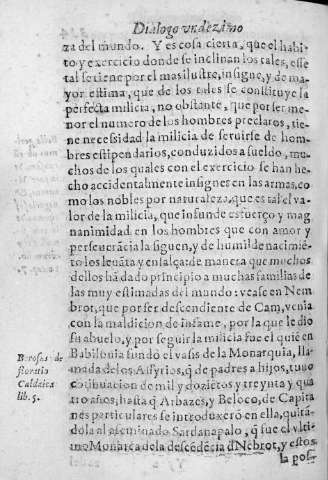 Dialogo vndezimo
za del mundo. Y es cosa cierta, que el habi
to y exercicio donde se inclinan los tales, esse
tal se tiene por el mas ilustre, insigne, y de ma-
yor estima, que de los tales se constituye la
perfecta milicia, no obstante, que por ser me-
nor el numero de los hombres preclaros, tie-
ne necessidad la milicia de seruirse de hom-
bres estipendarios, conduzidos a sueldo, mu-
chos de los quales con el exercicio se han he-
cho accidentalmente insignes en las armas, co
mo los nobles por naturaleza, que es tal el va-
lor de la milicia, que infunde esfuerço y mag
nanimidad en los hombres que con amor y
perseuerãcia la siguen, y de humil de nacimiẽ-
to los leuãta y enfalça: de manera que muchos
dellos hã dado principio a muchas familias de
las muy estimadas del mundo: vease en Nem
brot, que por ser descendiente de Cam, venia
con la maldicion de infame, por la que le dio
su abuelo, y por seguir la milicia fue el quiẽ en
Babilonia fundó el vasis de la Monarquia, lla-
mada de los Assyrios, q̃ de padres a hijos, tuuo
cõtinuacion de mil y dozietos y treynta y qua
tro años, hasta q̃ Arbazes, y Beloco, de Capita
nes particulares se introduxerõ en ella, quitã-
dola al afeminado Sardanapalo, q̃ fue el vlti-
mo Monarca de la descẽdẽcia d Nẽbrot, y estos
la pos-
Berosus de
floratio
Caldaica
lib. 5.